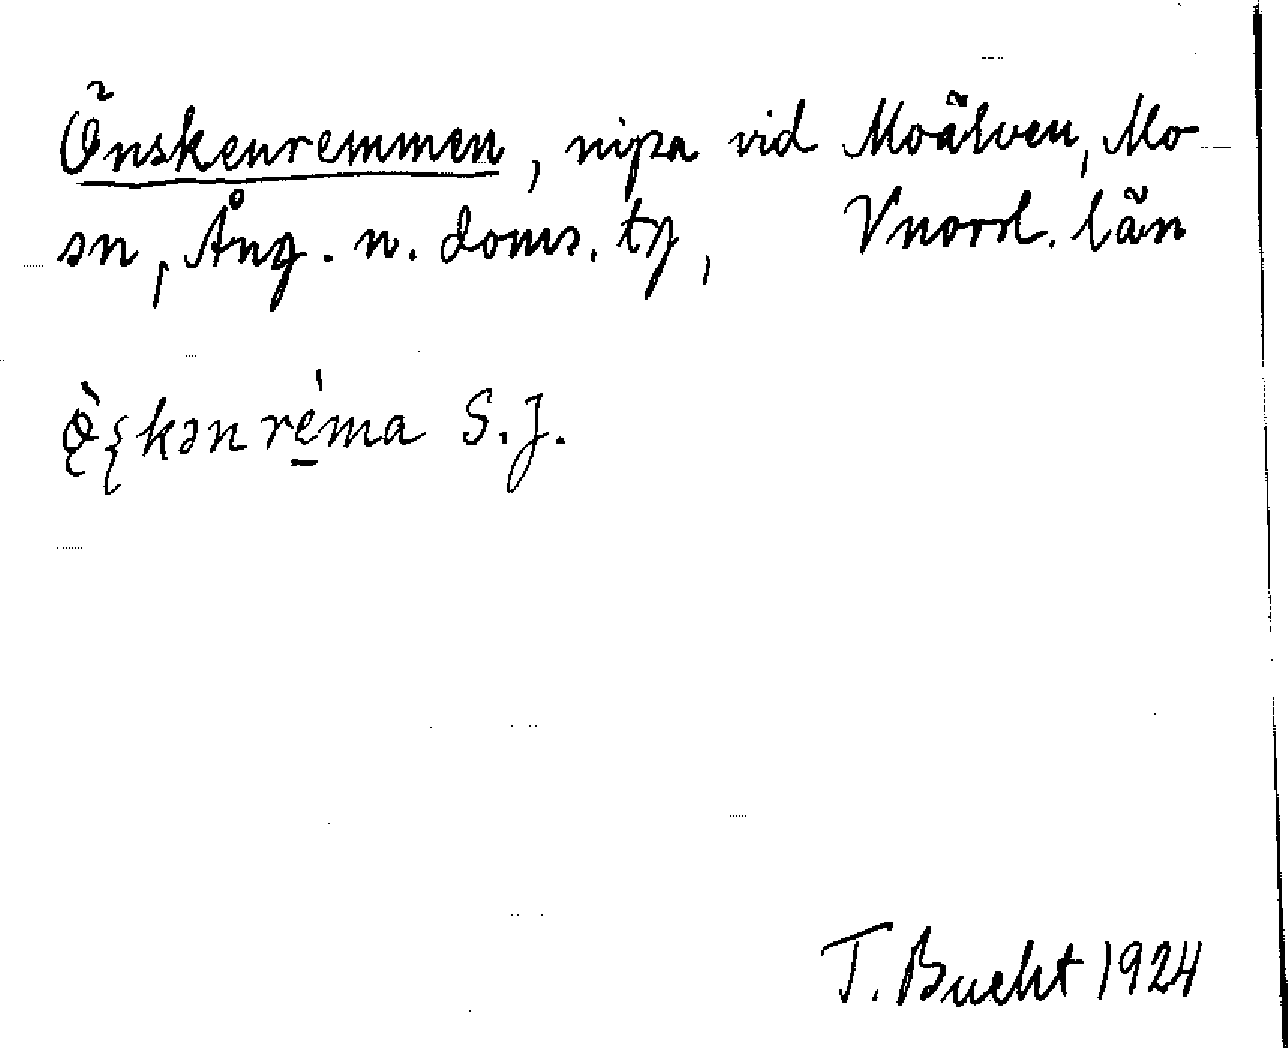 Önskenremmen, nipa vid Moälven, Mo
sn, Ång. n. doms. tg, Vnorrl. län
S. J.
T. Bucht 1924